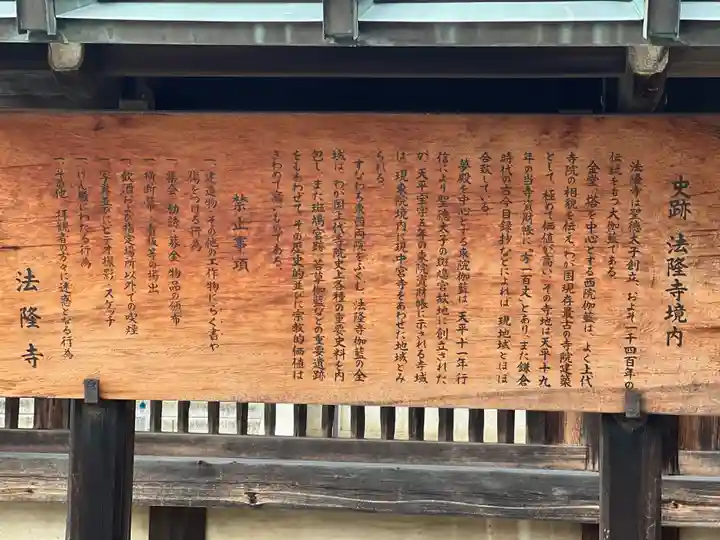 史跡 法隆寺境内
法隆寺は聖徳太子創立、およそ一千四百年の
伝統をもつ大伽藍である。
金堂、塔を中心とする西院伽藍は、よく上代
寺院の相貌を伝え、わが国現存最古の寺院建築
として、極めて価値が高い。その寺地は天平十九
年の当寺資財帳に「方一百丈」とあり、また鎌倉
時代の古今目録抄などによれば、現地域とほぼ
合致している。
夢殿を中心とする東院伽藍は、天平十一年行
信により聖徳太子の斑鳩宮故地に創立された
が、天平宝字五年の東院資財帳に示される寺域
は、現東院境内に現中宮寺をあわせた地域とみ
られる。
すなわち東西両院をふくむ、法隆寺伽藍の全
域は、わが国上代寺院史上各種の重要史料を内
包し、また斑鳩宮跡、若草伽藍などの重要遺跡
をもあわせて、その歴史的並びに宗教的価値は
きわめて高いものである。
禁止事項
一、建造物、その他の工作物にらく書や
傷をつける行為
一、集会、勧誘、募金、物品の頒布
一、横断幕、看板等の掲出
一、飲酒および指定場所以外での喫煙
一、写真並びにビデオ撮影、スケッチ
一、けん騒にわたる行為
一、その他、拝観者の方々に迷惑となる行為
法隆寺